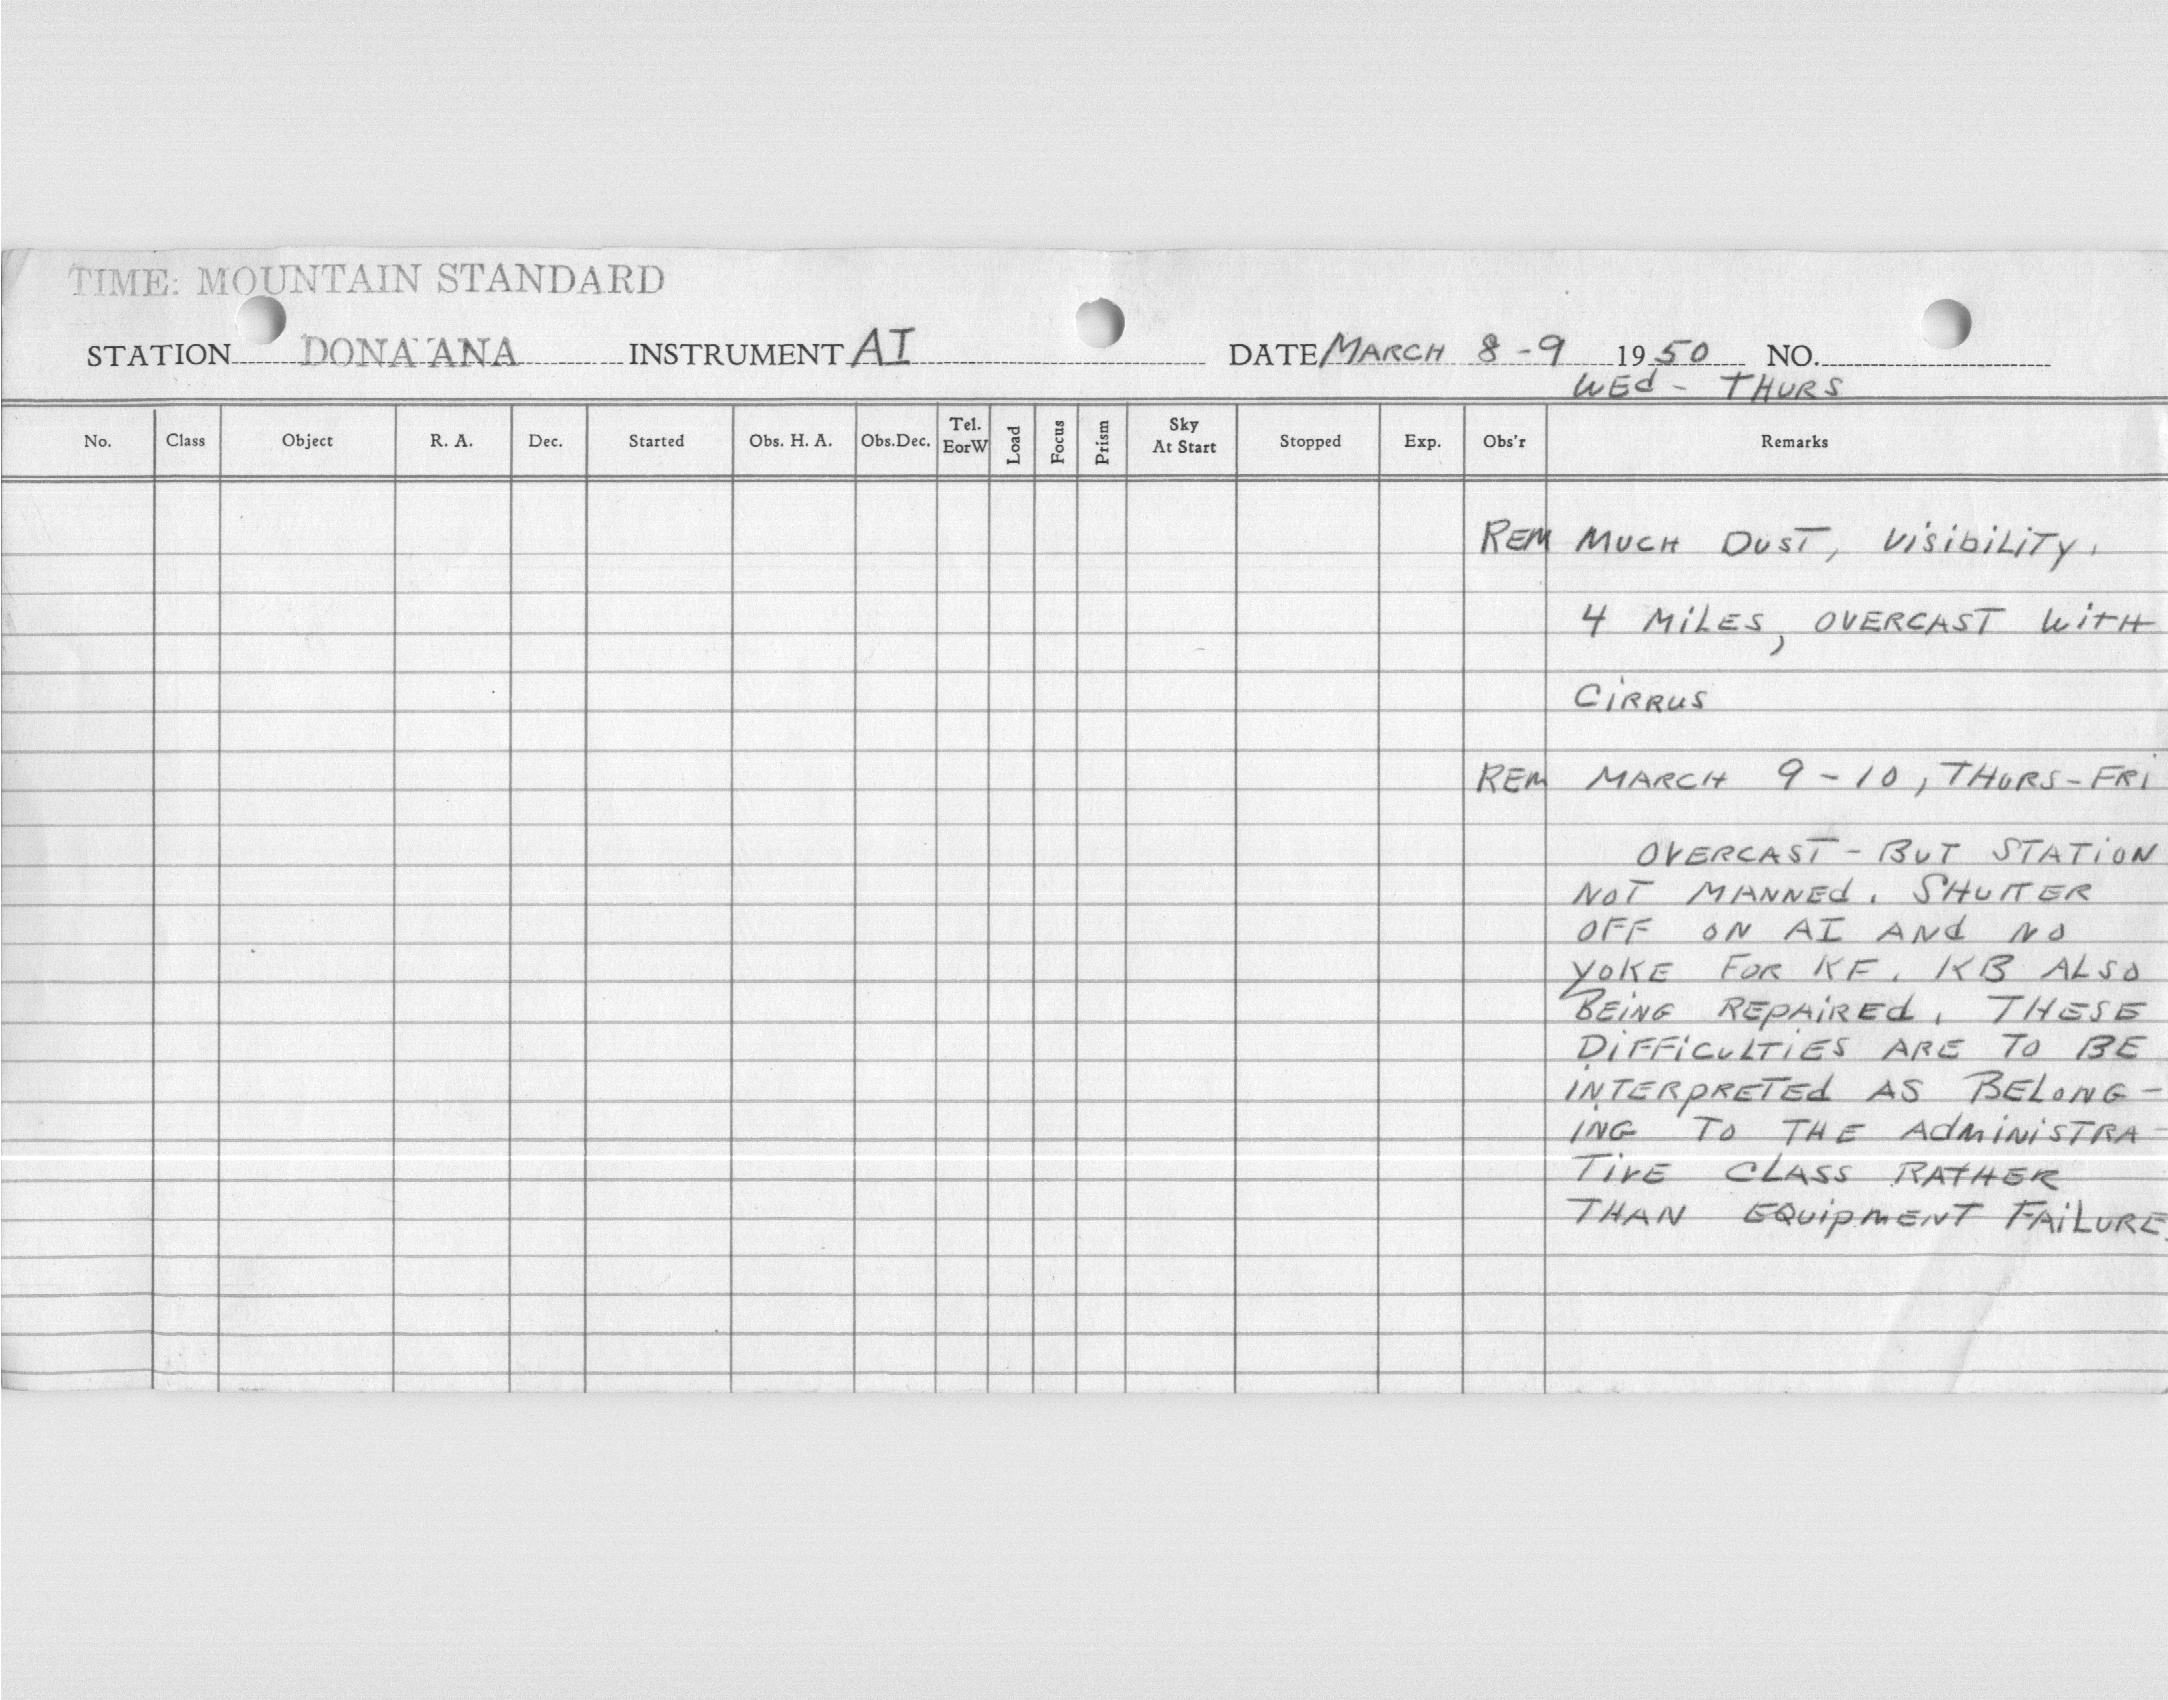 TIME: MOUNTAIN STANDARD
STATION DONA ANA INSTRUMENT AI DATE MARCH 8-9 1950 NO.
WEd - THURS
No. Class Object R. A. Dec. Started Obs. H. A. Obs.Dec. Tel. EorW Load Focus Prism Sky At Start Stopped Exp. Obs'r Remarks
REM MUCH DUST, VISIBILITY.
4 MILES, OVERCAST WITH
CIRRUS
REM MARCH 9-10, THURS-FRI
OVERCAST - BUT STATION
NOT MANNED. SHUTTER
OFF ON AI AND NO
YOKE FOR KF. KB ALSO
BEING REPAIRED. THESE
DIFFICULTIES ARE TO BE
INTERPRETED AS BELONG-
ING TO THE ADMINISTRA-
TIVE CLASS RATHER
THAN EQUIPMENT FAILURE.